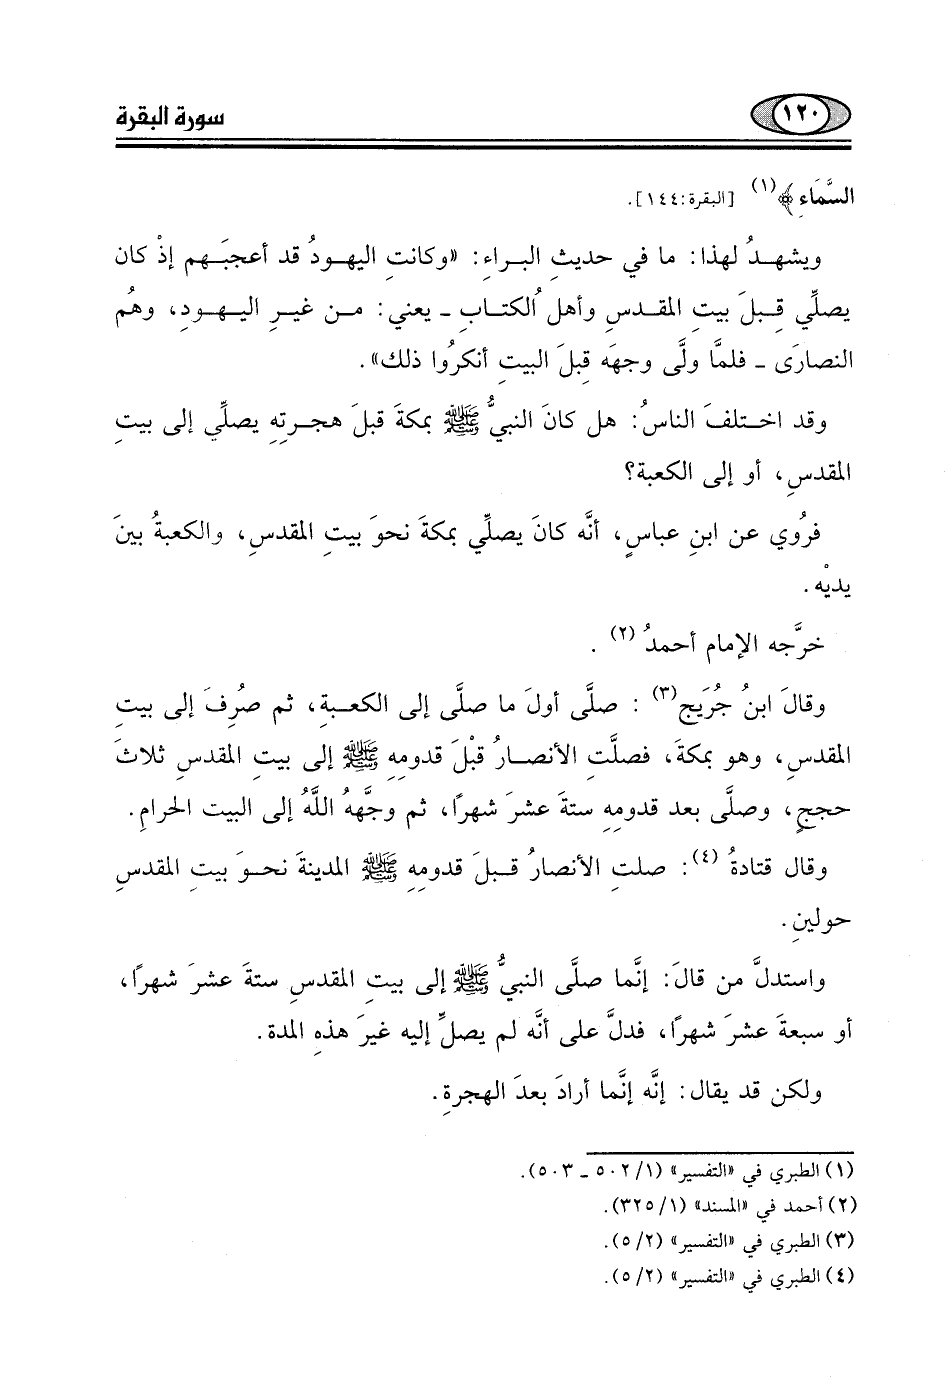 ١٢٠ سورة البقرة
السَّمَاءِ ﴾(١) [البقرة:١٤٤].
ويشهدُ لهذا: ما في حديثِ البراءِ: «وكانتِ اليهودُ قد أعجبَهم إذْ كان
يصلِّي قِبلَ بيتِ المقدسِ وأهلُ الكتابِ ـ يعني: من غيرِ اليهودِ، وهُم
النصارَى ـ فلمَّا ولَّى وجهَه قِبلَ البيتِ أنكرُوا ذلك».
وقد اختلفَ الناسُ: هل كانَ النبيُّ ﷺ بمكةَ قبلَ هجرتِهِ يصلِّي إلى بيتِ
المقدسِ، أو إلى الكعبة؟
فرُوي عن ابنِ عباسٍ، أنَّه كانَ يصلِّي بمكةَ نحوَ بيتِ المقدسِ، والكعبةُ بينَ
يديْه.
خرَّجه الإمام أحمدُ (٢) .
وقالَ ابنُ جُرَيج(٣) : صلَّى أولَ ما صلَّى إلى الكعبةِ، ثم صُرِفَ إلى بيتِ
المقدسِ، وهو بمكةَ، فصلَّتِ الأنصارُ قبْلَ قدومِهِ ﷺ إلى بيتِ المقدسِ ثلاثَ
حججٍ، وصلَّى بعد قدومِهِ ستةَ عشرَ شهرًا، ثم وجَّههُ اللَّهُ إلى البيت الحرامِ.
وقال قتادةُ (٤): صلتِ الأنصارُ قبلَ قدومِهِ ﷺ المدينةَ نحوَ بيتِ المقدسِ
حولينِ.
واستدلَّ من قالَ: إنَّما صلَّى النبيُّ ﷺ إلى بيتِ المقدسِ ستةَ عشرَ شهرًا،
أو سبعةَ عشرَ شهرًا، فدلَّ على أنَّه لم يصلِّ إليه غيرَ هذهِ المدة.
ولكن قد يقال: إنَّه إنَّما أرادَ بعدَ الهجرةِ.
(١) الطبري في «التفسير» (١/ ٥٠٢ ـ ٥٠٣).
(٢) أحمد في «المسند» (١/ ٣٢٥).
(٣) الطبري في «التفسير» (٢/ ٥).
(٤) الطبري في «التفسير» (٢/ ٥).